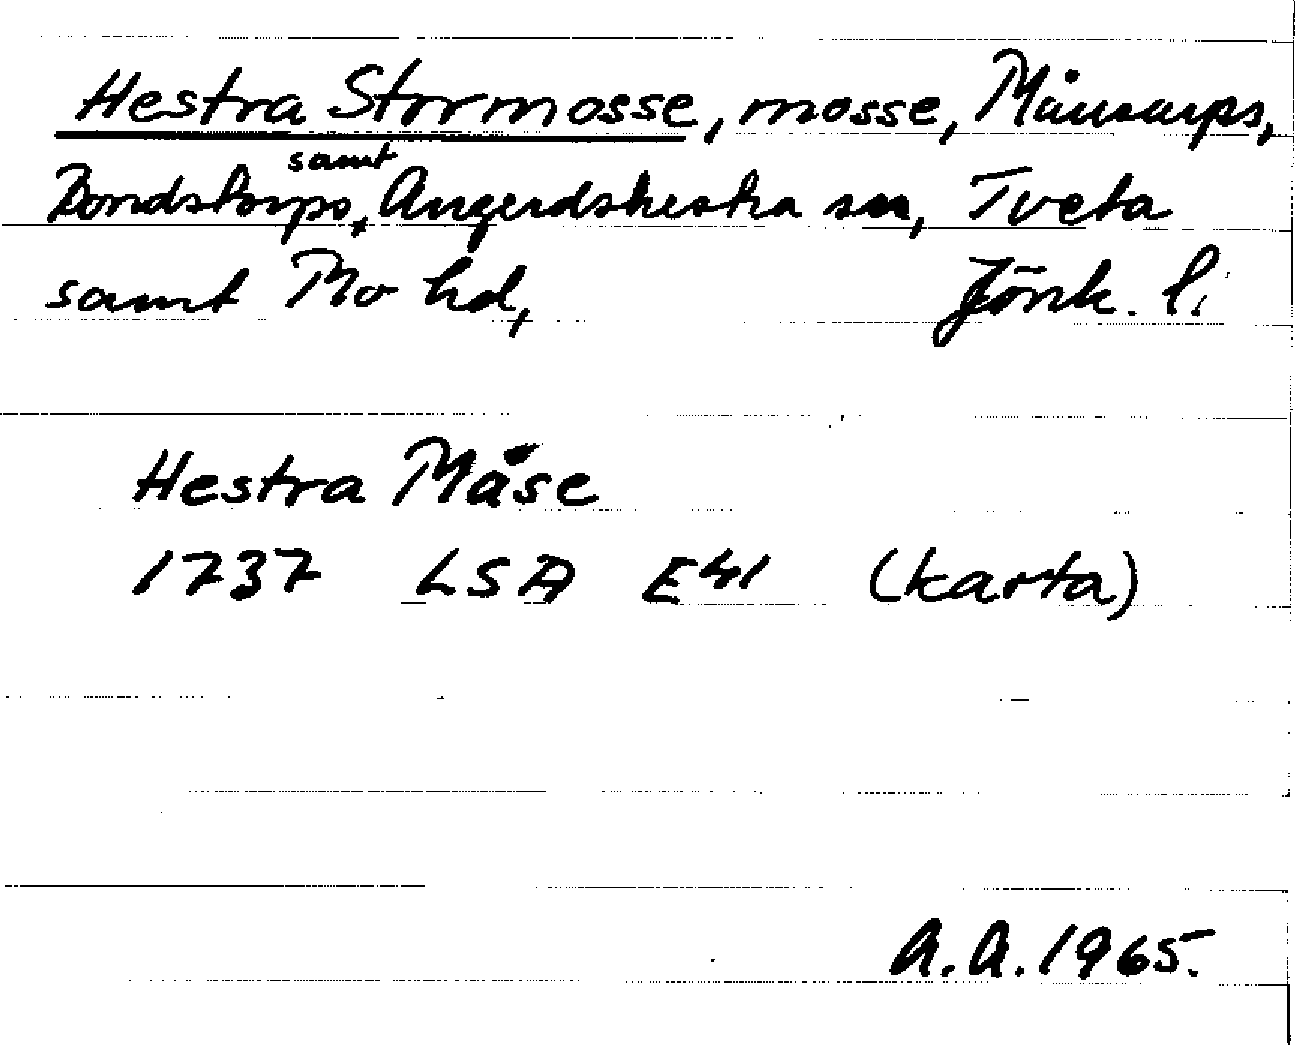 Hestra Stormosse, mosse, Månsarps,
Bondstorps, samt Angerdshestra sn, Tveta
samt Mo hd, Jönk. l.
Hestra Måse
1737 LSA E41 (karta)
A.A. 1965.